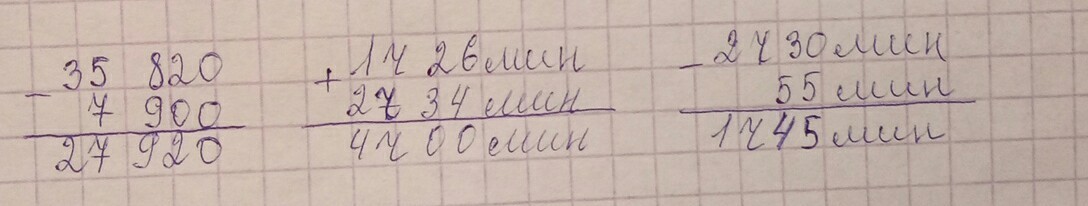 35 820
- 7 900
27 920
+ 1ч 26мин
2ч 34мин
4ч 00мин
- 2ч 30мин
55мин
1ч 45мин